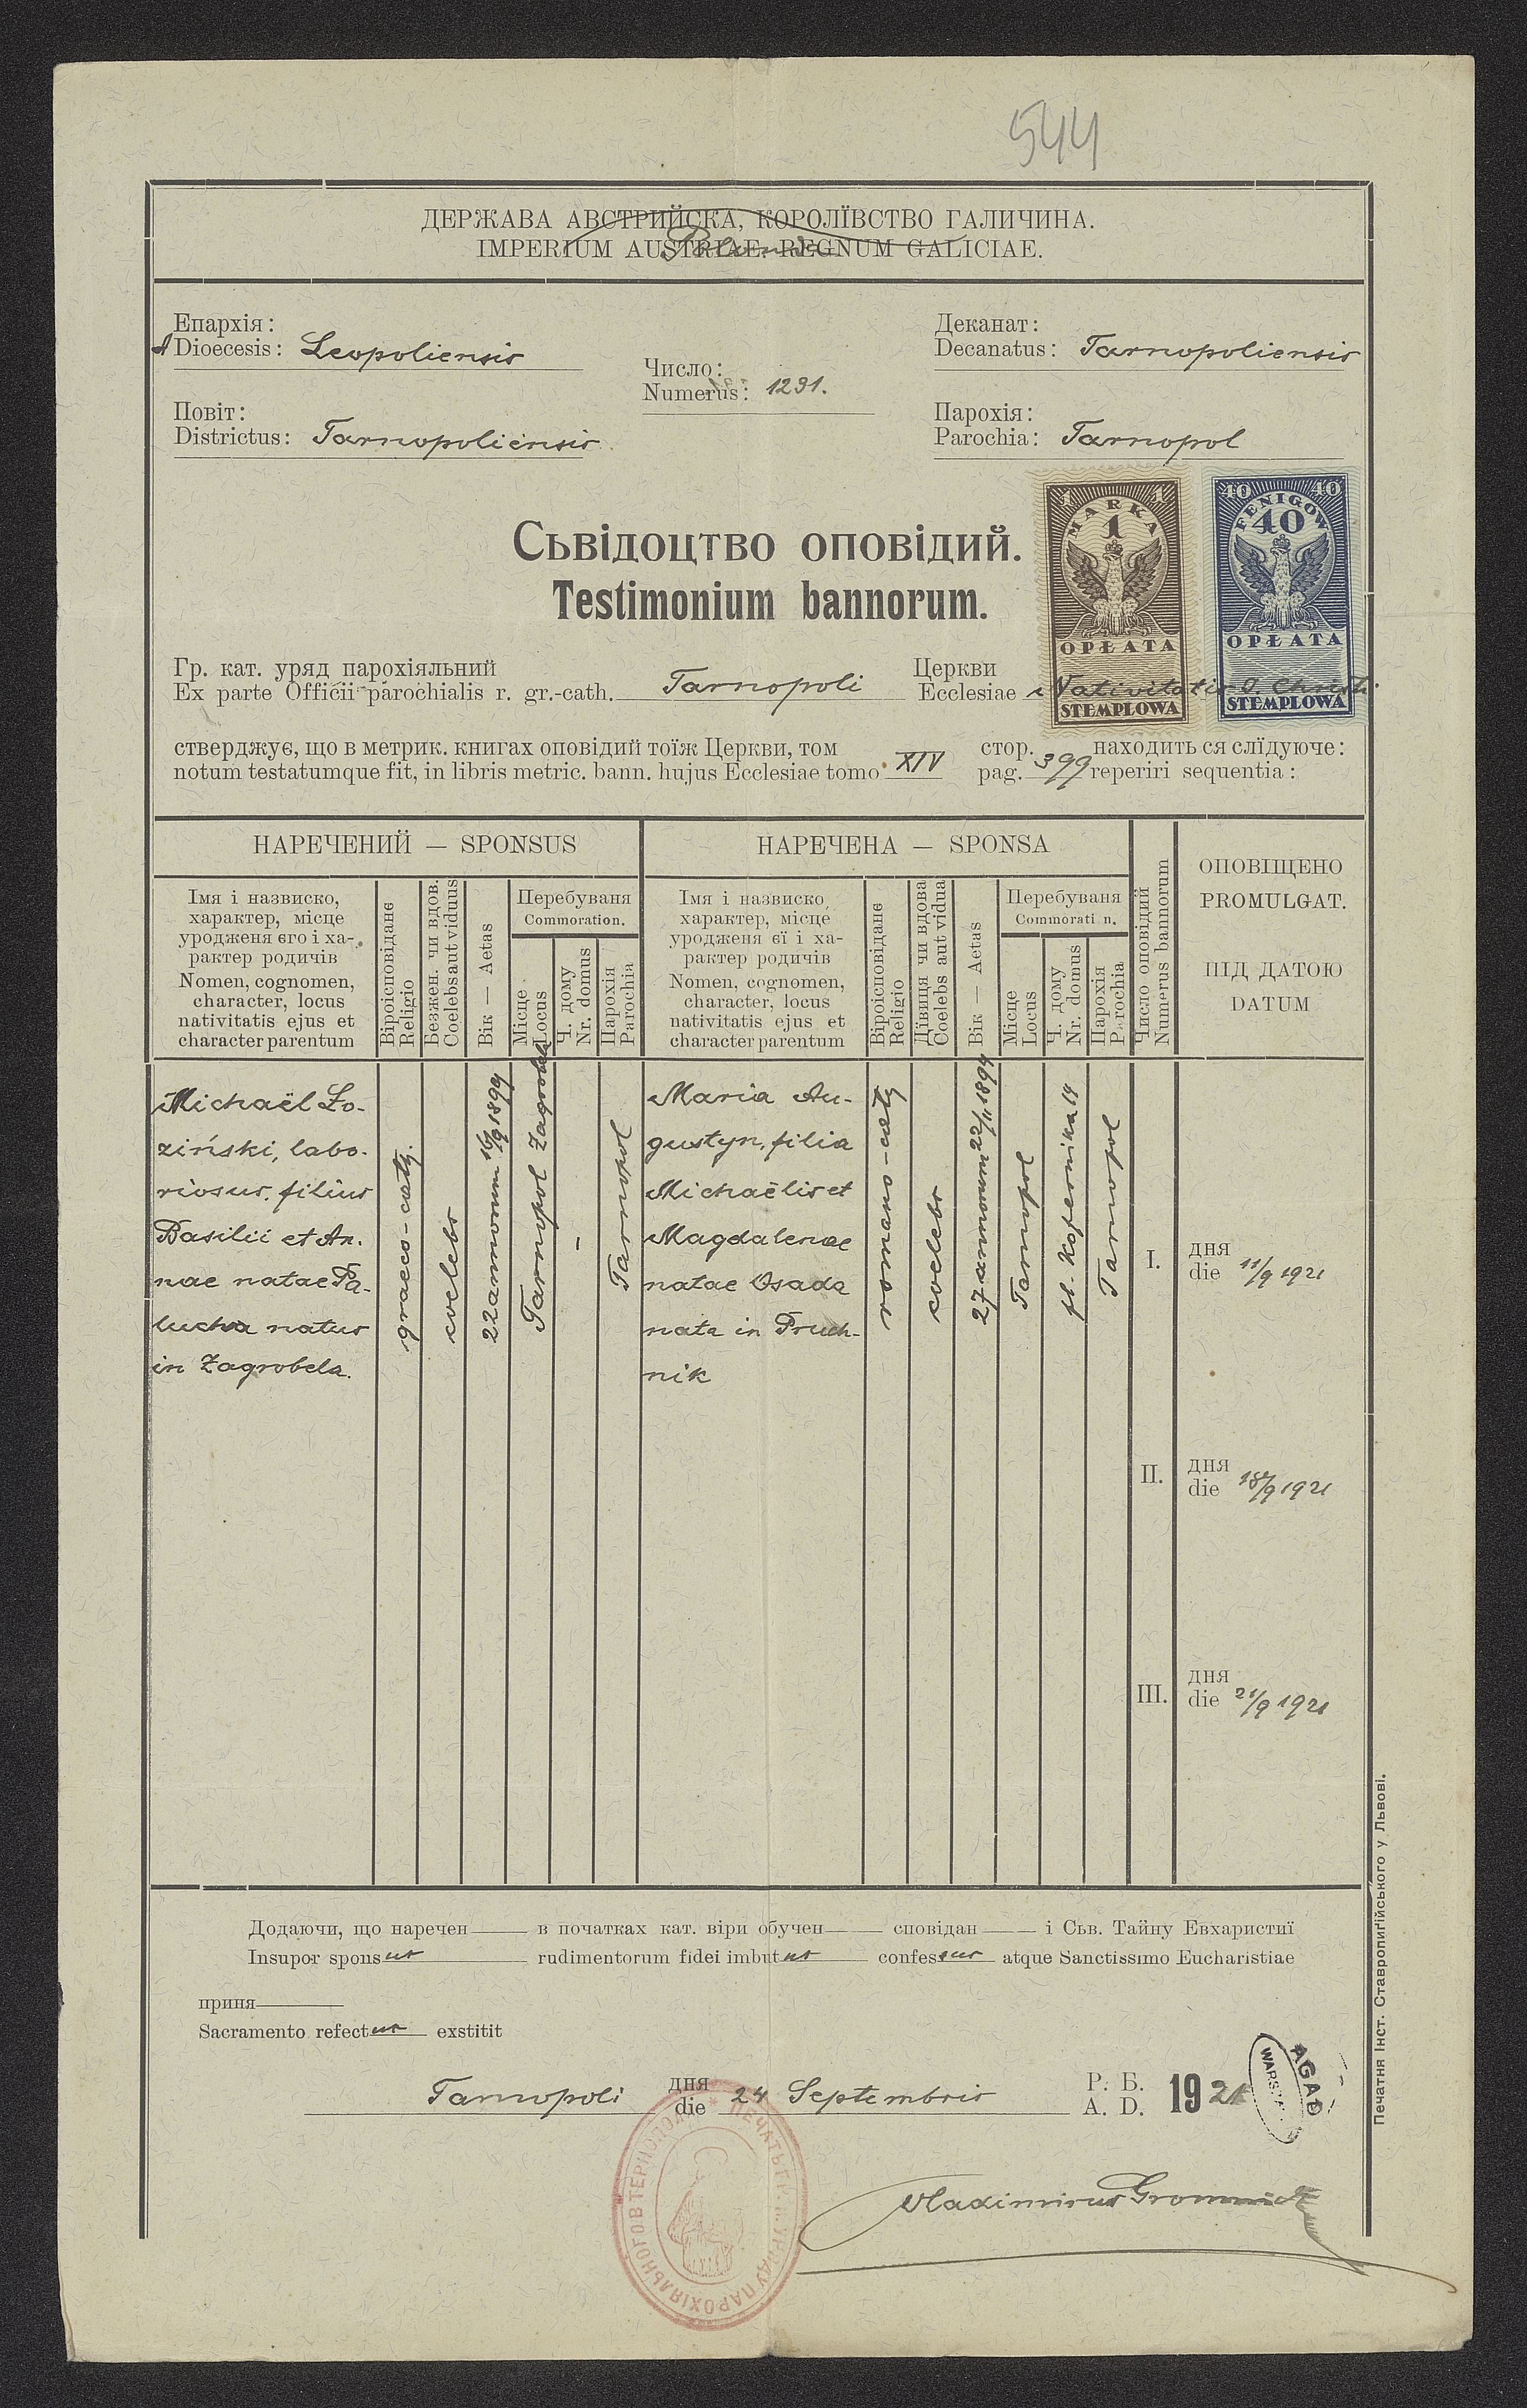 544
ДЕРЖАВА АВСТРИЙСКА, КОРОЛЇВСТВО ГАЛИЧИНА.
IMPERIUM AUSTRIAE. REGNUM GALICIAE.
Епархія:
A Dioecesis: Leopoliensis
Число:
Numerus: 1231.
Деканат:
Decanatus: Tarnopoliensis
Повіт:
Districtus: Tarnopoliensis
Парохія:
Parochia: Tarnopol
Сьвідоцтво оповідий.
Testimonium bannorum.
1 1
MARKA
1
OPŁATA
STEMPLOWA
40 40
FENIGÓW
40
OPŁATA
STEMPLOWA
Гр. кат. уряд парохіяльний Церкви
Ex parte Officii parochialis r. gr.-cath. Tarnopoli Ecclesiae Nativitatis D. Christi
стверджує, що в метрик. книгах оповідий тоїж Церкви, том стор. находить ся слїдуюче:
notum testatumque fit, in libris metric. bann. hujus Ecclesiae tomo XIV pag. 399 reperiri sequentia:
НАРЕЧЕНИЙ — SPONSUS
Імя і назвиско,
характер, місце
уродженя єго і ха-
рактер родичів
Nomen, cognomen,
character, locus
nativitatis ejus et
character parentum
Віроісповіданє
Religio
Безжен. чи вдов.
Coelebs aut viduus
Вік — Aetas
Перебуваня
Commoration.
Місце
Locus
Ч. дому
Nr. domus
Парохія
Parochia
НАРЕЧЕНА — SPONSA
Імя і назвиско,
характер, місце
уродженя єї і ха-
рактер родичів
Nomen, cognomen,
character, locus
nativitatis ejus et
character parentum
Віроісповіданє
Religio
Дївиця чи вдова
Coelebs aut vidua
Вік — Aetas
Перебуваня
Commorati n.
Місце
Locus
Ч. дому
Nr. domus
Парохія
Parochia
Число оповідий
Numerus bannorum
ОПОВІЩЕНО
PROMULGAT.
ПІД ДАТОЮ
DATUM
Michaël Ło-
ziński, labo-
riosus, filius
Basilii et An-
nae natae Pa-
lucha natus
in Zagrobela.
graeco-cath.
coelebs
22 annorum 16/9 1899
Tarnopol Zagrobela
-
Tarnopol
Maria Au-
gustyn, filia
Michaëlis et
Magdalenae
natae Osada
nata in Pruch-
nik
romano-cath
coelebs
27 annorum 22/11 1894
Tarnopol
pl. Kopernika 14
Tarnopol
I. дня
die 11/9 1921
II. дня
die 18/9 1921
III. дня
die 21/9 1921
Додаючи, що наречен в початках кат. віри обучен сповідан і Сьв. Тайну Евхаристиї
Insuper sponsus rudimentorum fidei imbutus confessus atque Sanctissimo Eucharistiae
приня
Sacramento refectus exstitit
Tarnopoli дня
die 24 Septembris Р. Б.
A. D. 1921
AGAD
WARSZAWA
Vladimirus Gromnicki
Печатня Інст. Ставропигійського у Львові.